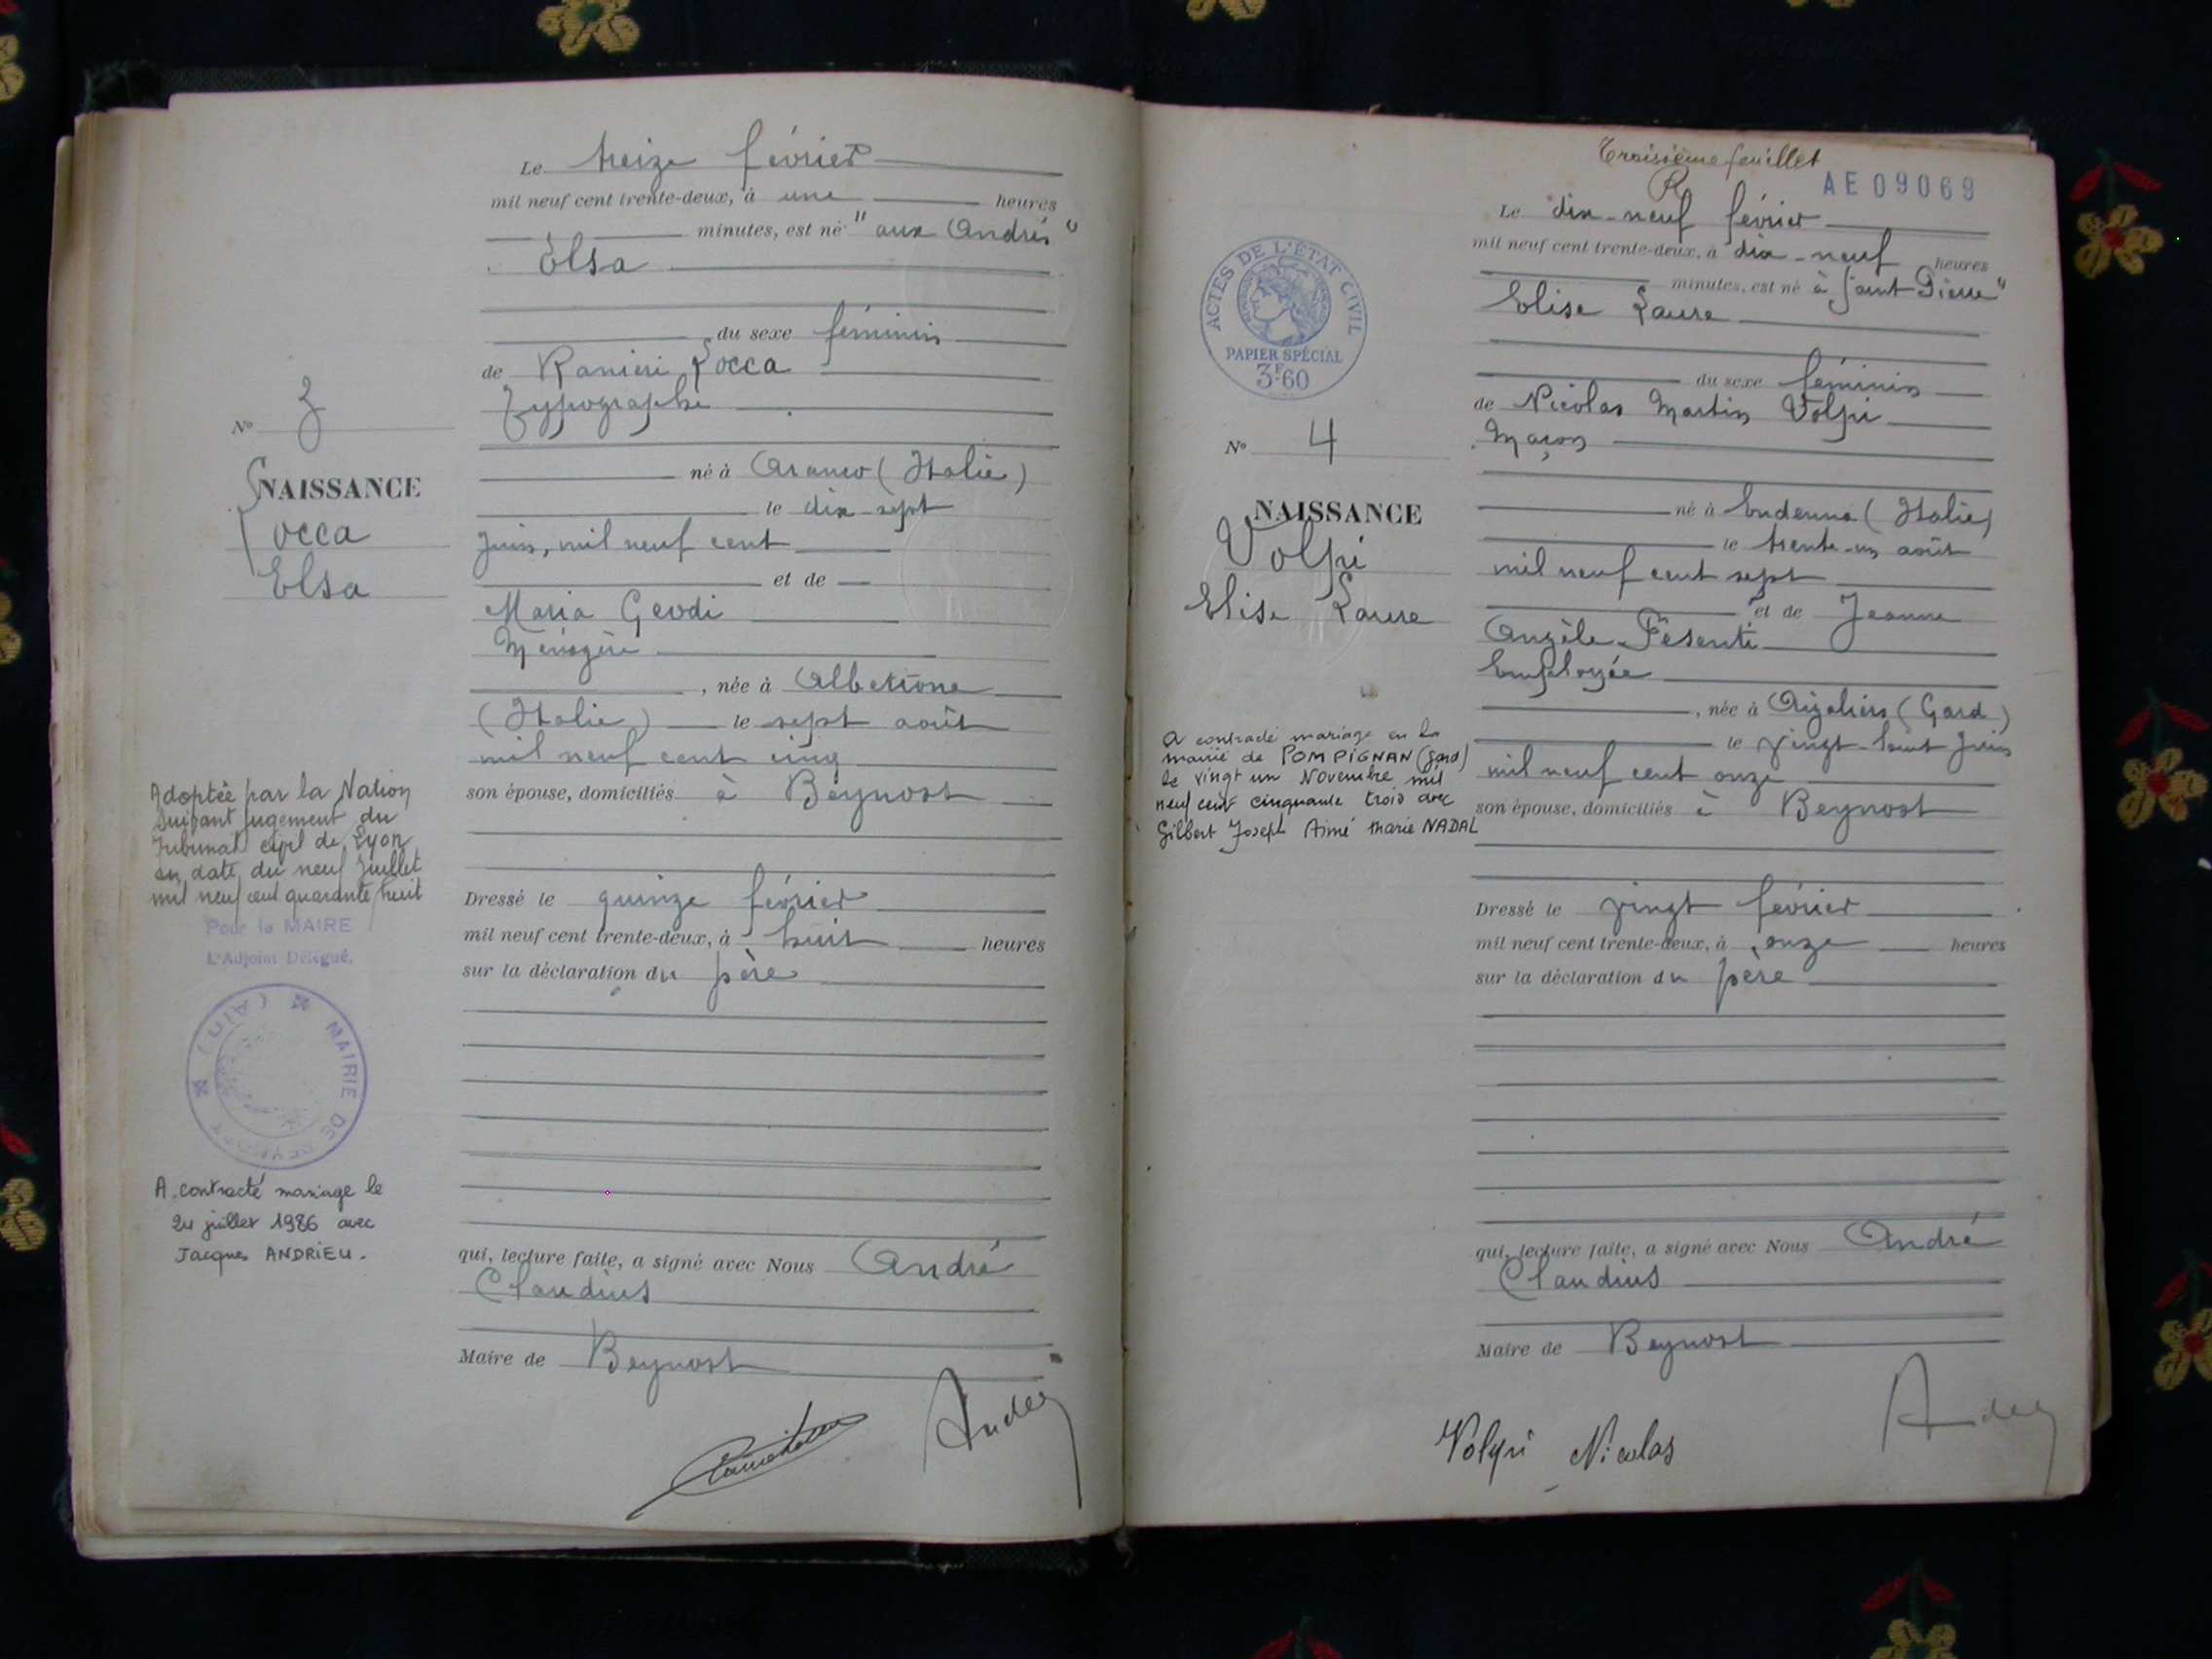 Le treize février
mil neuf cent trente-deux, à une heures
minutes, est né "aux Andrés"
Elsa
du sexe féminin
de Ranieri Locca
Typographe
né à (Italie)
le dix-sept
juin, mil neuf cent
et de
Maria Geodi
Ménagère
, née à Albettone
(Italie) le sept août
mil neuf cent cinq
son épouse, domiciliés à Beynost
Dressé le quinze février
mil neuf cent trente-deux, à huit heures
sur la déclaration du père
qui, lecture faite, a signé avec Nous André
Claudius
Maire de Beynost
No 3
NAISSANCE
Locca
Elsa
Adoptée par la Nation
suivant jugement du
Tribunal civil de Lyon
en date du neuf Juillet
mil neuf cent quarante huit
Pour le MAIRE
L'Adjoint Délégué,
MAIRIE DE BEYNOST (Ain)
A contracté mariage le
24 juillet 1986 avec
Jacques ANDRIEU.
Troisième feuillet
AE09069
Le dix-neuf février
mil neuf cent trente-deux, à dix-neuf heures
minutes, est né à Saint Pierre"
Elise Laure
du sexe féminin
de Nicolas Martin Volpi
Maçon
né à Endenna (Italie)
le trente-un août
mil neuf cent sept
et de Jeanne
Angèle Pésenti
Employée
, née à Aigaliers (Gard)
le vingt-huit juin
mil neuf cent onze
son épouse, domiciliés à Beynost
Dressé le vingt février
mil neuf cent trente-deux, à onze heures
sur la déclaration du père
qui, lecture faite, a signé avec Nous André
Claudius
Maire de Beynost
Volpi Nicolas
ACTES DE L'ÉTAT CIVIL
PAPIER SPÉCIAL
3F.60
No 4
NAISSANCE
Volpi
Elise Laure
A contracté mariage en la
mairie de POMPIGNAN (Gard)
le vingt un Novembre mil
neuf cent cinquante trois avec
Gilbert Joseph Aimé Marie NADAL